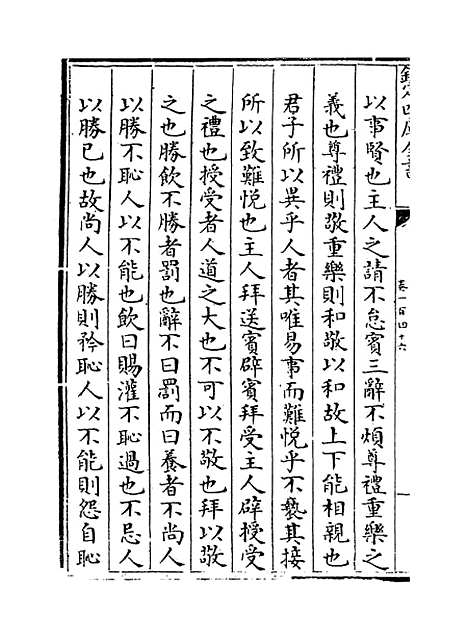 欽定四庫全書
卷一百四十六
以事賢也主人之請不怠賓三辭不煩尊禮重樂之
義也尊禮則敬重樂則和敬以和故上下能相親也
君子所以異乎人者其唯易事而難悅乎不褻其接
所以致難悅也主人拜送賓辟賓拜受主人辟授受
之禮也授受者人道之大也不可以不敬也拜以敬
之也勝飲不勝者罰也辭不曰罰而曰養者不尚人
以勝不恥人以不能也飲曰賜灌不恥過也不忌人
以勝已也故尚人以勝則矜恥人以不能則怨自恥